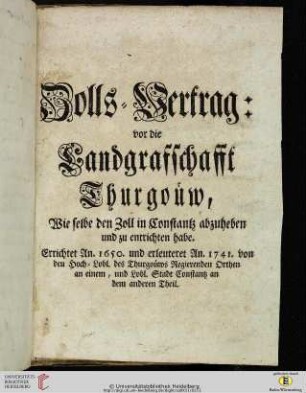 Zolls-Vertrag:
vor die
Landgrafschafft
Thurgoüw,
Wie selbe den Zoll in Constantz abzuheben
und zu entrichten habe.
Errichtet An. 1650. und erleuteret An. 1741. von
den Hoch-Lobl. des Thurgoüws Regierenden Orthen
an einem, und Lobl. Stadt Constantz an
dem anderen Theil.
UNIVERSITÄTS-
BIBLIOTHEK
HEIDELBERG
© Universitätsbibliothek Heidelberg
Baden-Württemberg